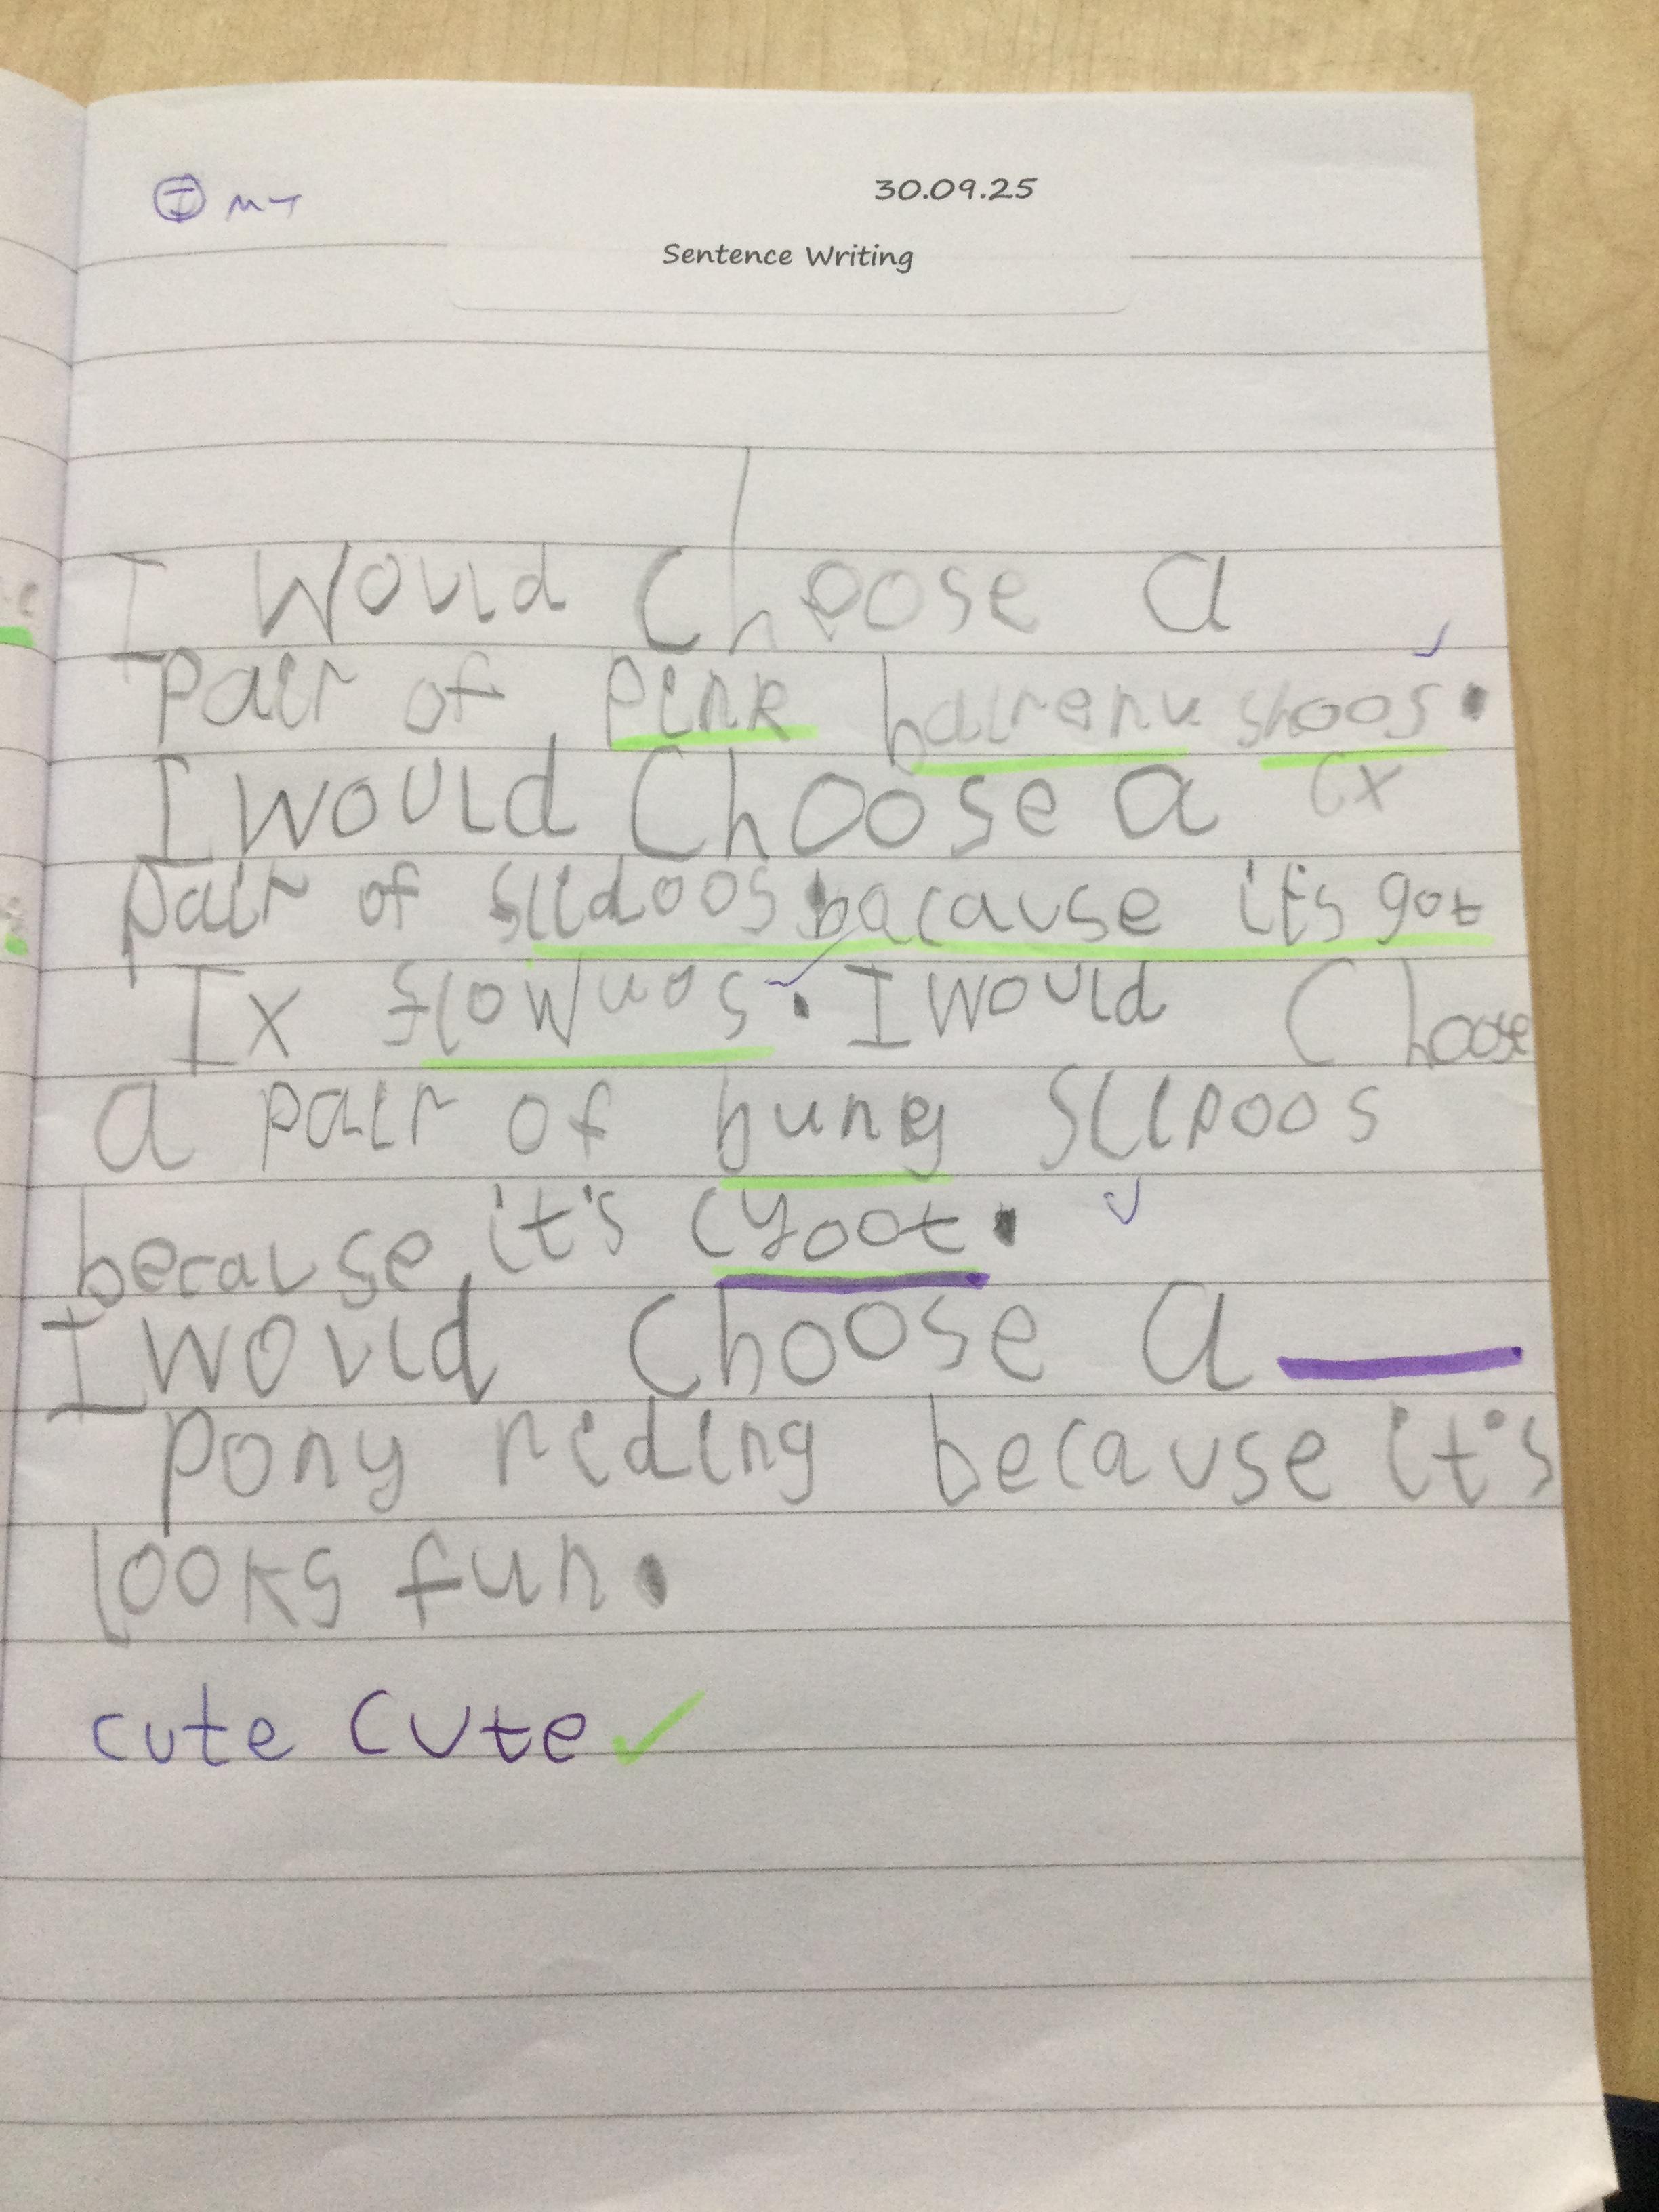 I MT
30.09.25
Sentence Writing
I would Choose a
pair of pink bairenu shoos.
I would Choose a cx
pair of slidoos bacause it's got
Ix flowuos. I would Choose
a pair of buny slipoos
because it's cyoot.
I would Choose a
pony riding because it's
looks fun.
cute cute